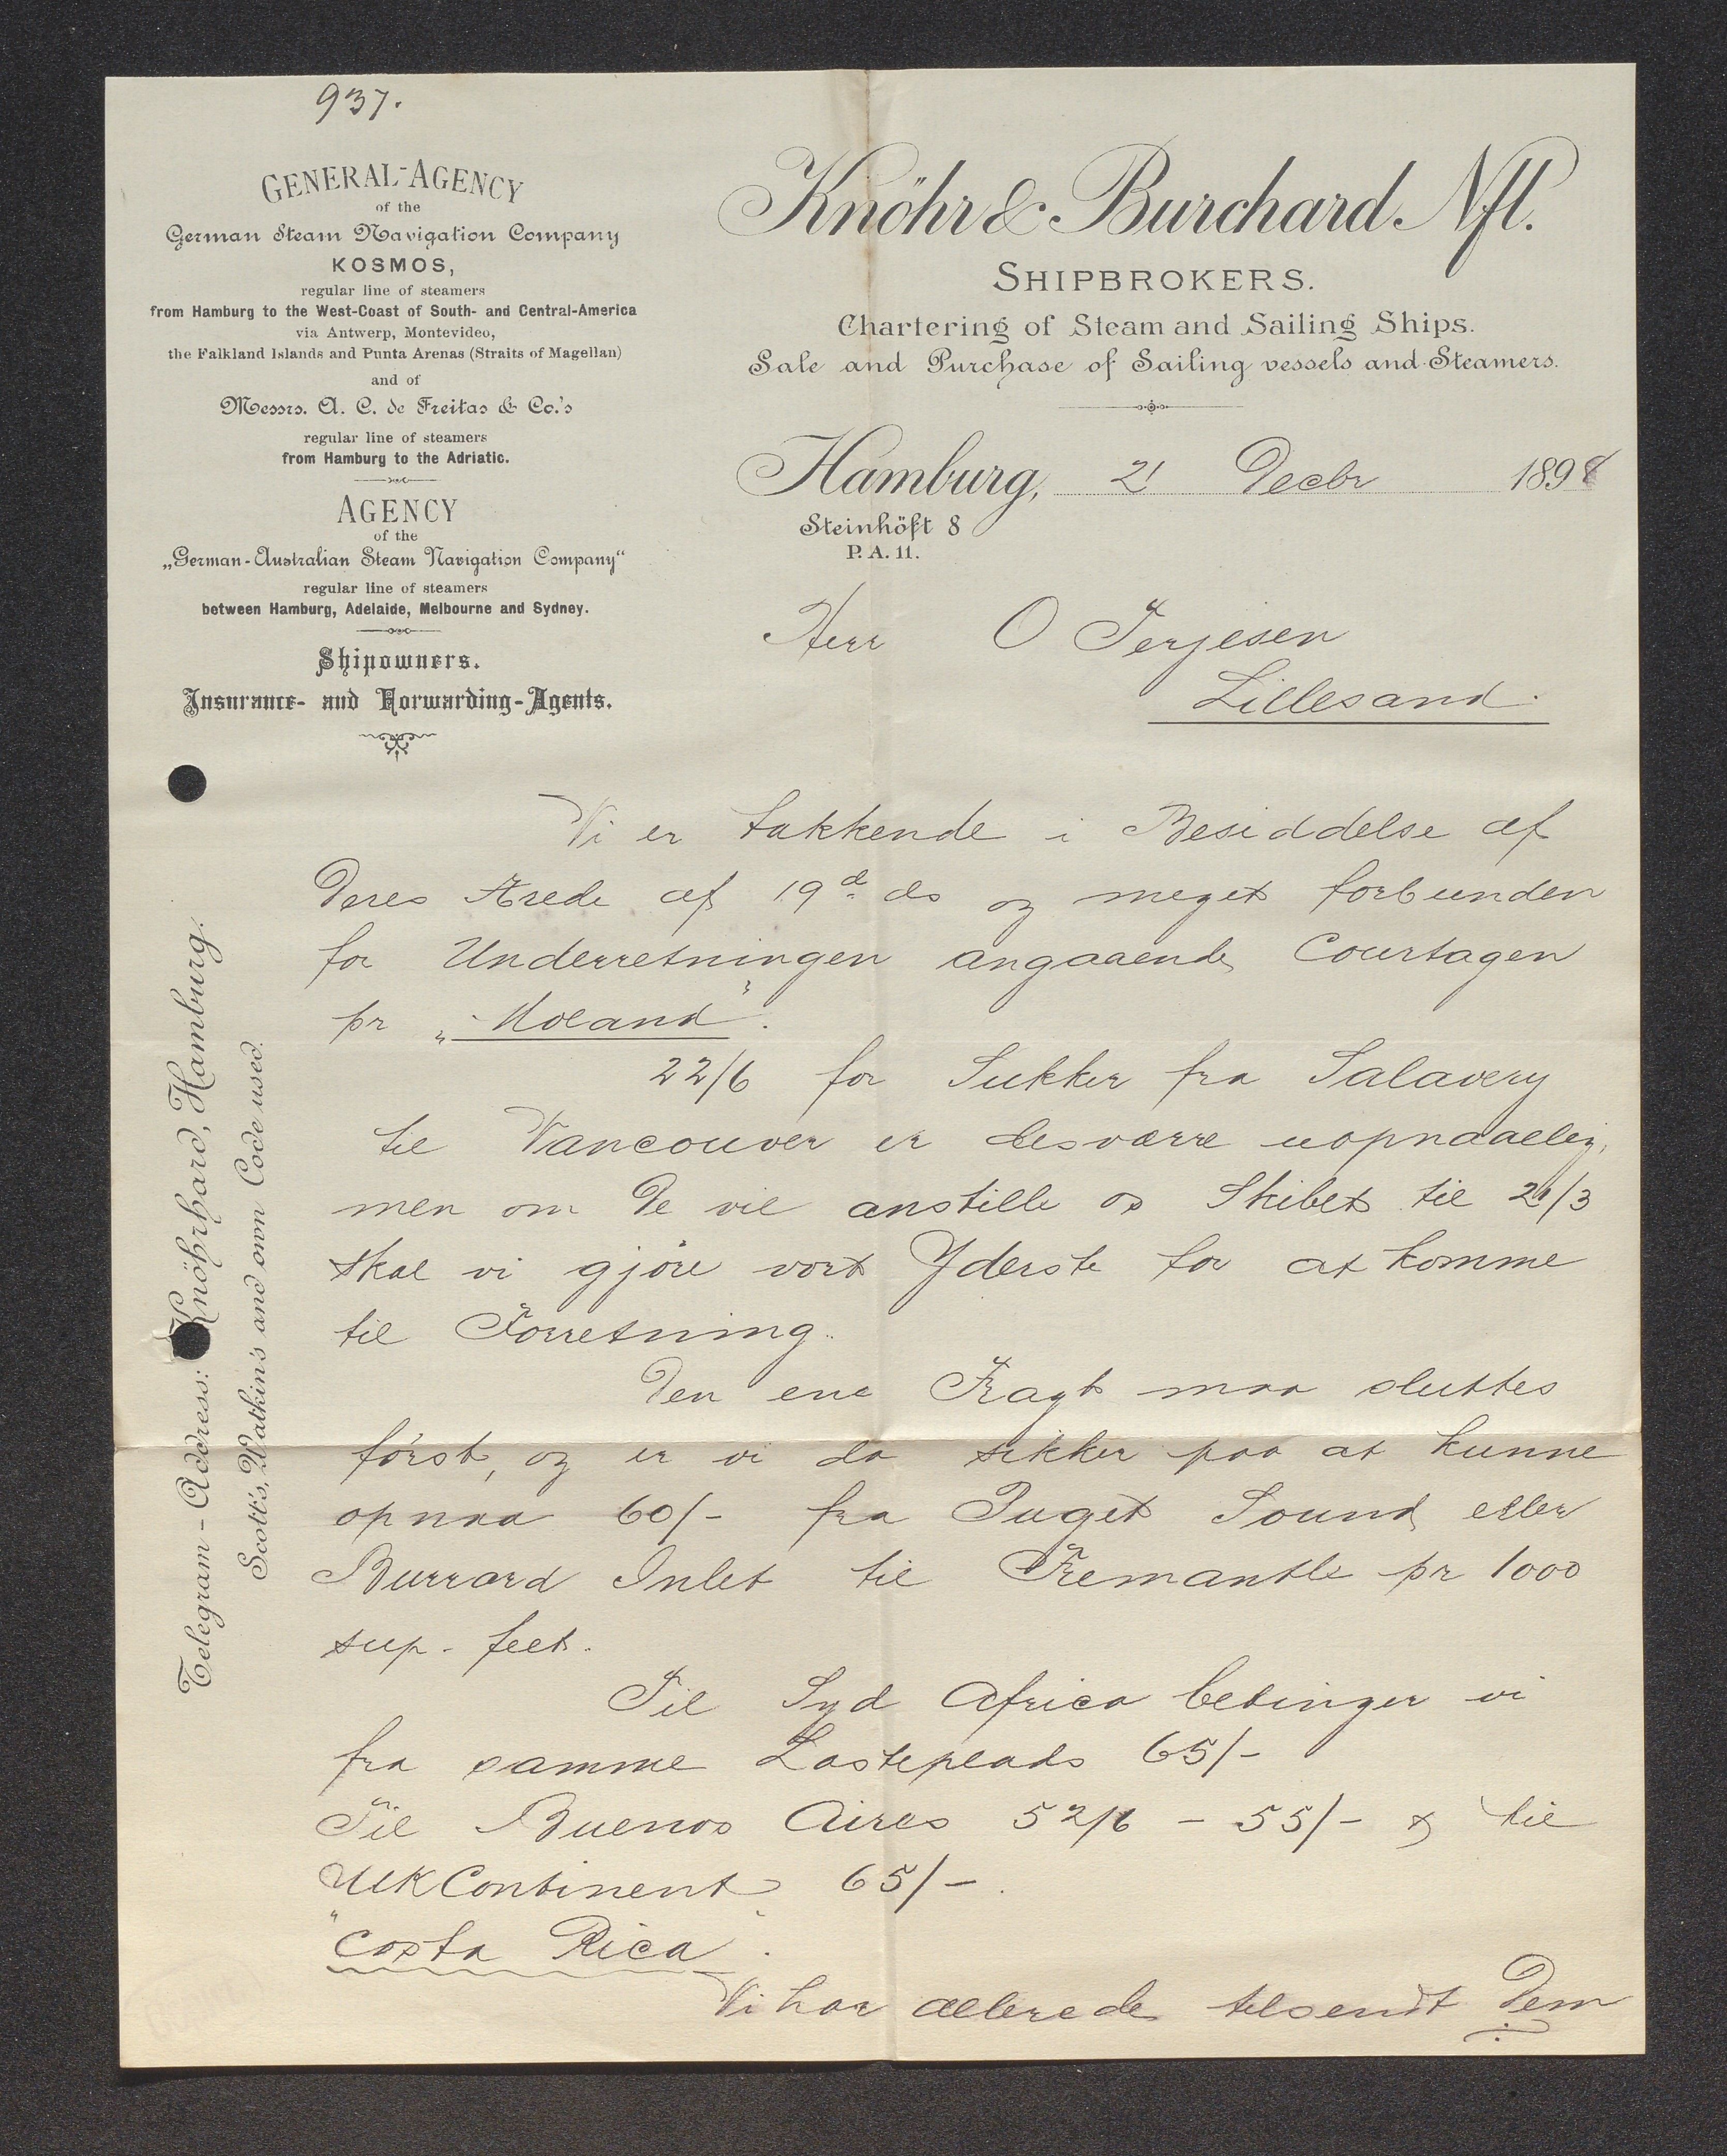 937.
GENERAL-AGENCY
of the
German Steam Navigation Company
KOSMOS,
regular line of steamers
from Hamburg to the West-Coast of South- and Central-America
via Antwerp, Montevideo,
the Falkland Islands and Punta Arenas (Straits of Magellan)
and of
Messrs. A. C. de Freitas & Co.'s
regular line of steamers
from Hamburg to the Adriatic.
AGENCY
of the
„German-Australian Steam Navigation Company“
regular line of steamers
between Hamburg, Adelaide, Melbourne and Sydney.
Shipowners.
Insurance- and Forwarding-Agents.
Telegram-Address: Knöhrhard, Hamburg.
Scott's, Watkin's and own Code used.
Knöhr & Burchard Nfl.
SHIPBROKERS.
Chartering of Steam and Sailing Ships.
Sale and Purchase of Sailing vessels and Steamers.
Hamburg, 21 Decbr 1898
Steinhöft 8
P. A. 11.
Herr O Terjesen
Lillesand.
Vi er takkende i Besiddelse af
Deres Ærede af 19d ds og meget forbunden
for Underretningen angaaende Courtagen
pr „Moland".
22/6 for Sukker fra Salavery
til Vancouver er desværre uopnaaelig,
men om De vil anstille os Skibet til 21/3
skal vi gjöre vort Yderste for at komme
til Forretning.
Den ene Fragt maa sluttes
först, og er vi da sikker paa at kunne
opnaa 60/- fra Puget Sound eller
Burrard Inlet til Fremantle pr 1000
sup. feet.
Til Syd Africa betinger vi
fra samme Lasteplads 65/-
Til Buenos Aires 52/6 - 55/- & til
UKContinent 65/-.
"Costa Rica".
Vi har allerede tilsendt Dem